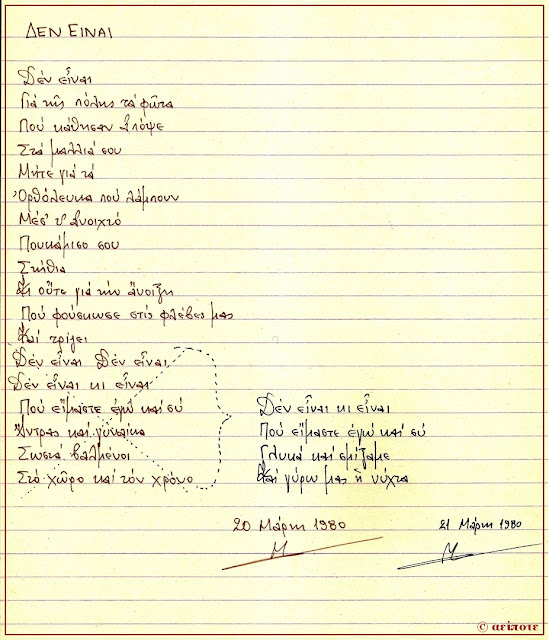 ΔΕΝ ΕΙΝΑΙ
Δέν εἶναι
Γιά τῆς πόλης τά φῶτα
Πού κάθησαν ἀπόψε
Στά μαλλιά σου
Μήτε γιά τά
Ὀρθόλευκα πού λάμπουν
Μέσ' τ' ἀνοιχτό
Πουκάμισο σου
Στήθια
Κι οὔτε γιά τήν ἄνοιξη
Πού φούσκωσε στίς φλέβες μας
Καί τρίζει
Δέν εἶναι Δέν εἶναι
Δέν εἶναι κι εἶναι
Πού εἴμαστε ἐγώ καί σύ
Ἄντρας καί γυναίκα
Σωστά βαλμένοι
Στό χῶρο καί τόν χρόνο
Δέν εἶναι κι εἶναι
Πού εἴμαστε ἐγώ καί σύ
Γλυκά καί σμίξαμε
Καί γύρω μας ἡ νύχτα
20 Μάρτη 1980
21 Μάρτη 1980
© αείποτε